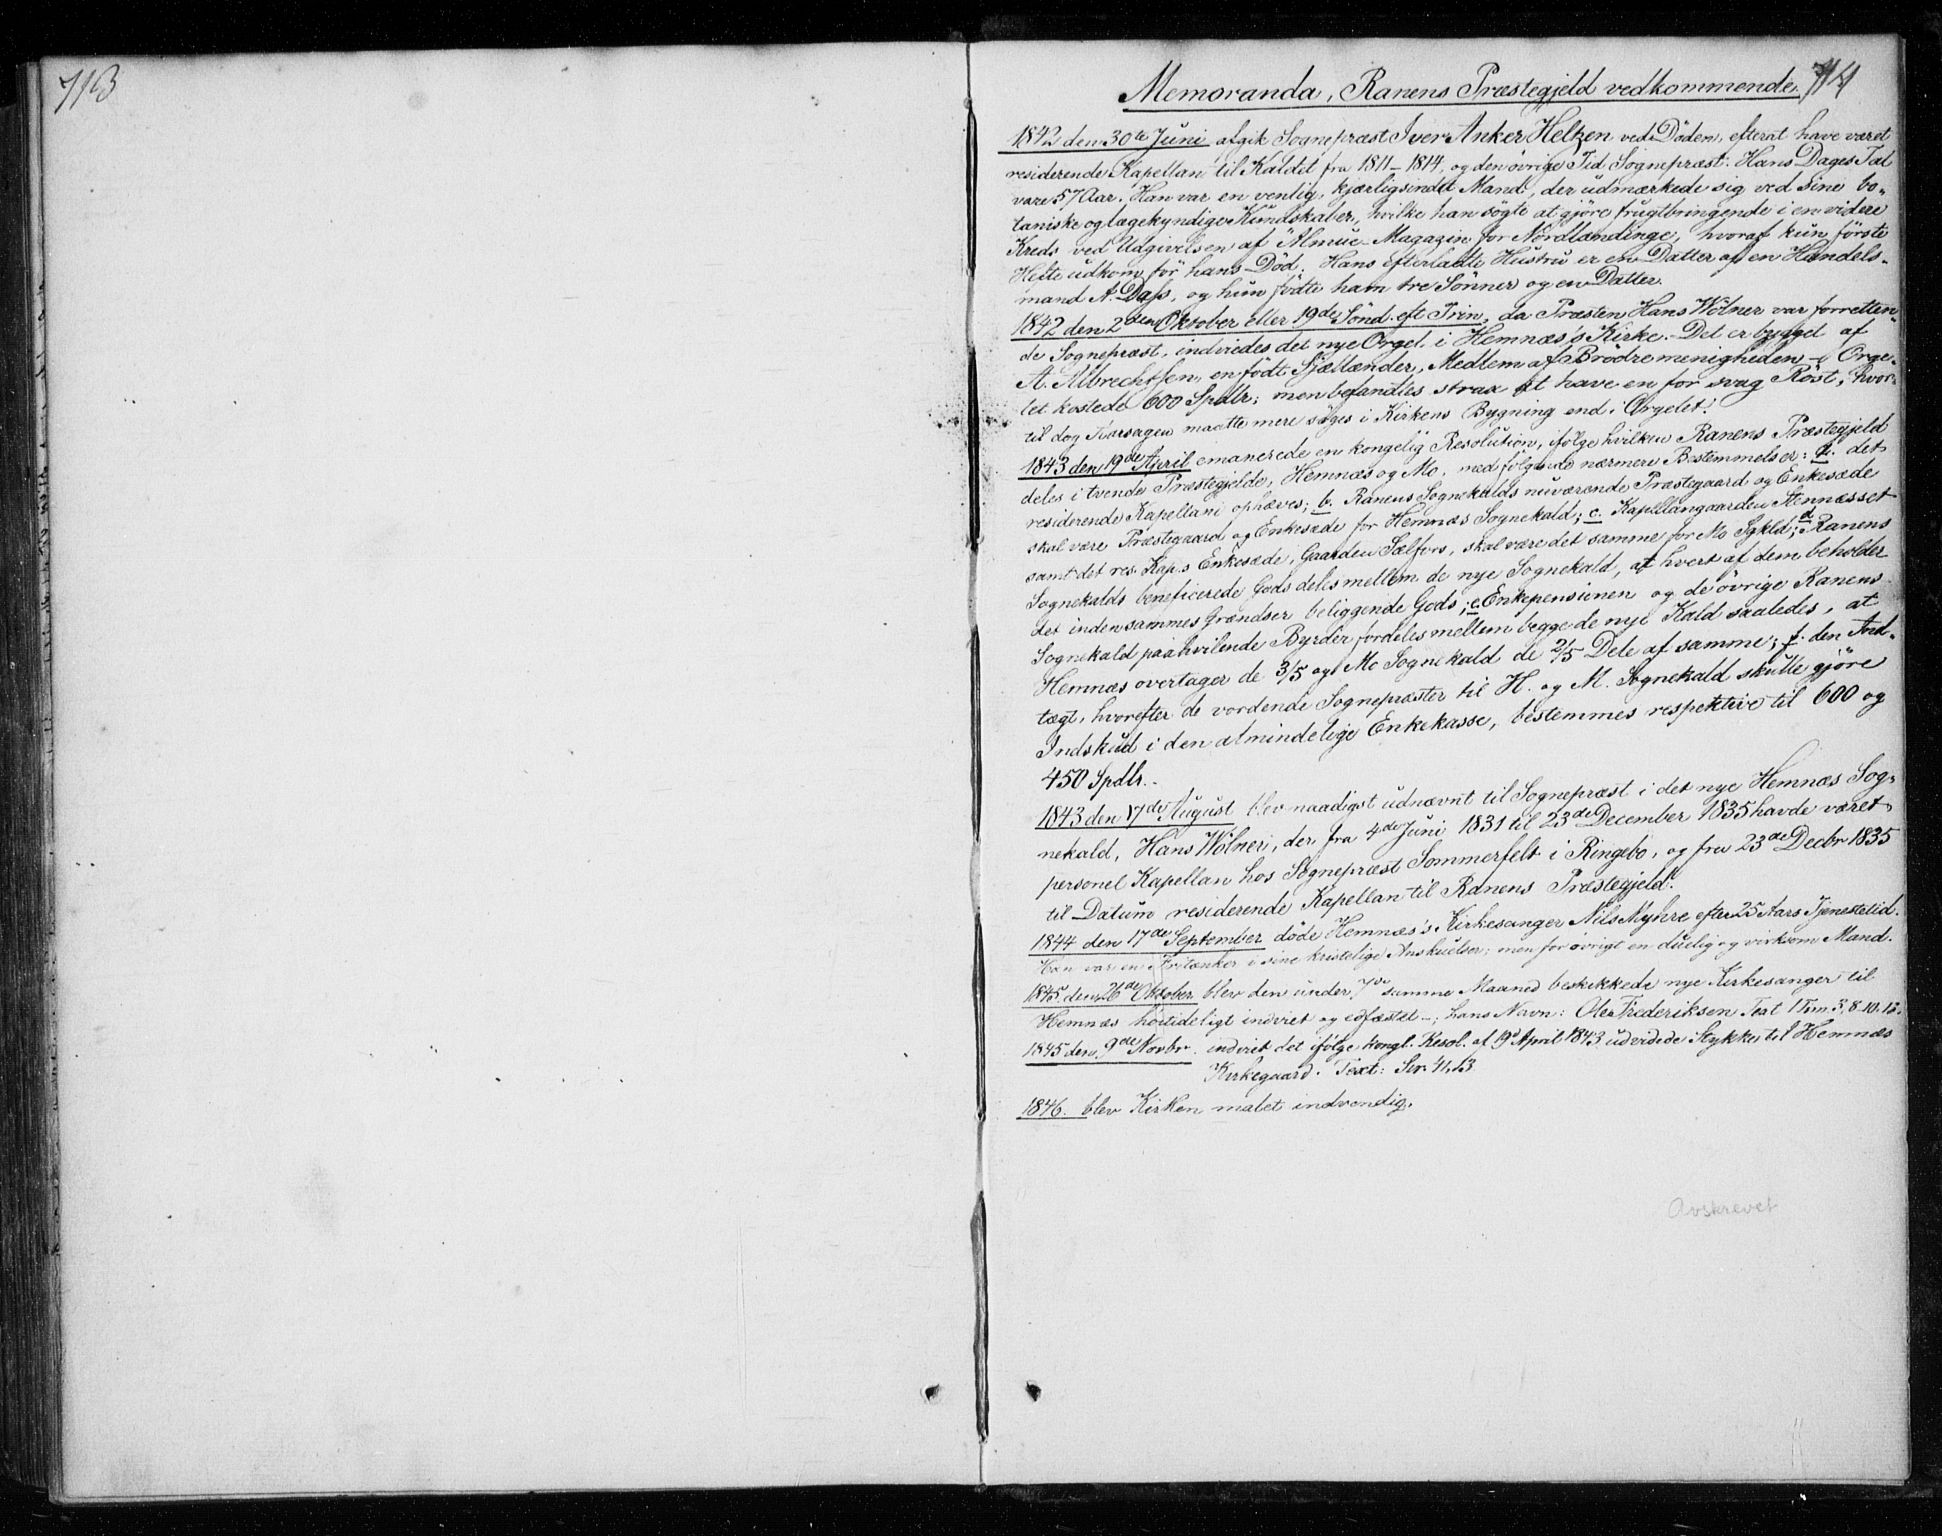 713
714
Memoranda, Ranens Præstegjeld vedkommende.
1842 den 30te Juni afgik Sognepræst Iver Anker Heltzen ved Döden, efterat have været
residerende Kapellan til Kaldet fra 1811–1814, og den övrige Tid Sognepræst. Hans Dages Tal
vare 57 Aar. Han var en venlig, kjærligsindet Mand, der udmærkede sig ved sine bo-
taniske og lægekyndige Kundskaber, hvilke han sögte at gjöre frugtbringende i en videre
Kreds ved Udgivelsen af Almue-Magazin for Nordlændinge, hvoraf kun förste
Hefte udkom för hans Död. Hans efterladte Hustru er en Datter af en Handels-
mand A. Dass, og hun födte ham tre Sönner og en Datter.
1842 den 2den Oktober eller 19de Sönd. eft Trin, da Præsten Hans Wölner var forretten-
de Sognepræst, indviedes det nye Orgel i Hemnæs's Kirke. Det er bygget af
A. Albrechtsen, en födt Sjællænder, Medlem af Brödremenigheden – Orge-
let kostede 600 Spdlr; men befandtes strax at have en for svag Röst, hvor-
til dog Aarsagen maatte mere söges i Kirkens Bygning end i Orgelet.
1843 den 19de April emanerede en kongelig Resolution, ifölge hvilken Ranens Præstegjeld
deles i tvende Præstegjelde, Hemnæs og Mo, med fölgende nærmere Bestemmelser: a. det
residerende Kapellani ophæves; b. Ranens Sognekalds nuværende Præstegaard og Enkesæde
skal være Præstegaard og Enkesæde for Hemnæs Sognekald; c. Kapellangaarden Stennæsset
samt det res. Kap.s Enkesæde, Gaarden Sælfors, skal være det samme for Mo Sgkld; d. Ranens
Sognekalds beneficerede Gods deles mellem de nye Sognekald, at hvert af dem beholder
det inden sammes Grændser beliggende Gods; e. Enkepensionen og de övrige Ranens
Sognekald paahvilende Byrder fordeles mellem begge de nye Kald saaledes, at
Hemnæs overtager de 3/5 og Mo Sognekald de 2/5 Dele af samme; f. den Ind-
tægt, hvorefter de vordende Sognepræster til H. og M. Sognekald skulle gjöre
Indskud i den almindelige Enkekasse, bestemmes respektive til 600 og
450 Spdlr.
1843 den 17de August blev naadigst udnævnt til Sognepræst i det nye Hemnæs Sog-
nekald, Hans Wölner, der fra 4de Juni 1831 til 23de December 1835 havde været
personel Kapellan hos Sognepræst Sommerfelt i Ringebo, og fra 23de Decbr 1835
til Datum residerende Kapellan til Ranens Præstegjeld.
1844 den 17de September döde Hemnæs's Kirkesanger Nils Myhre efter 25 Aars Tjenestetid.
Han var en Fritænker i sine kristelige Anskuelser; men for övrigt en duelig og virksom Mand.
1845 den 26de Oktober blev den under 7de samme Maaned beskikkede nye Kirkesanger til
Hemnæs höitideligt indviet og edfæstet –; hans Navn: Ole Frederiksen Text 1 Tim. 3, 8-10. 13.
1845 den 9de Novbr. indviet det ifölge kongl. Resol. af 19d April 1843 udvidede Stykke til Hemnæs
Kirkegaard. Text: Sir. 41, 3
1846. blev Kirken malet indvendig.
Avskrevet